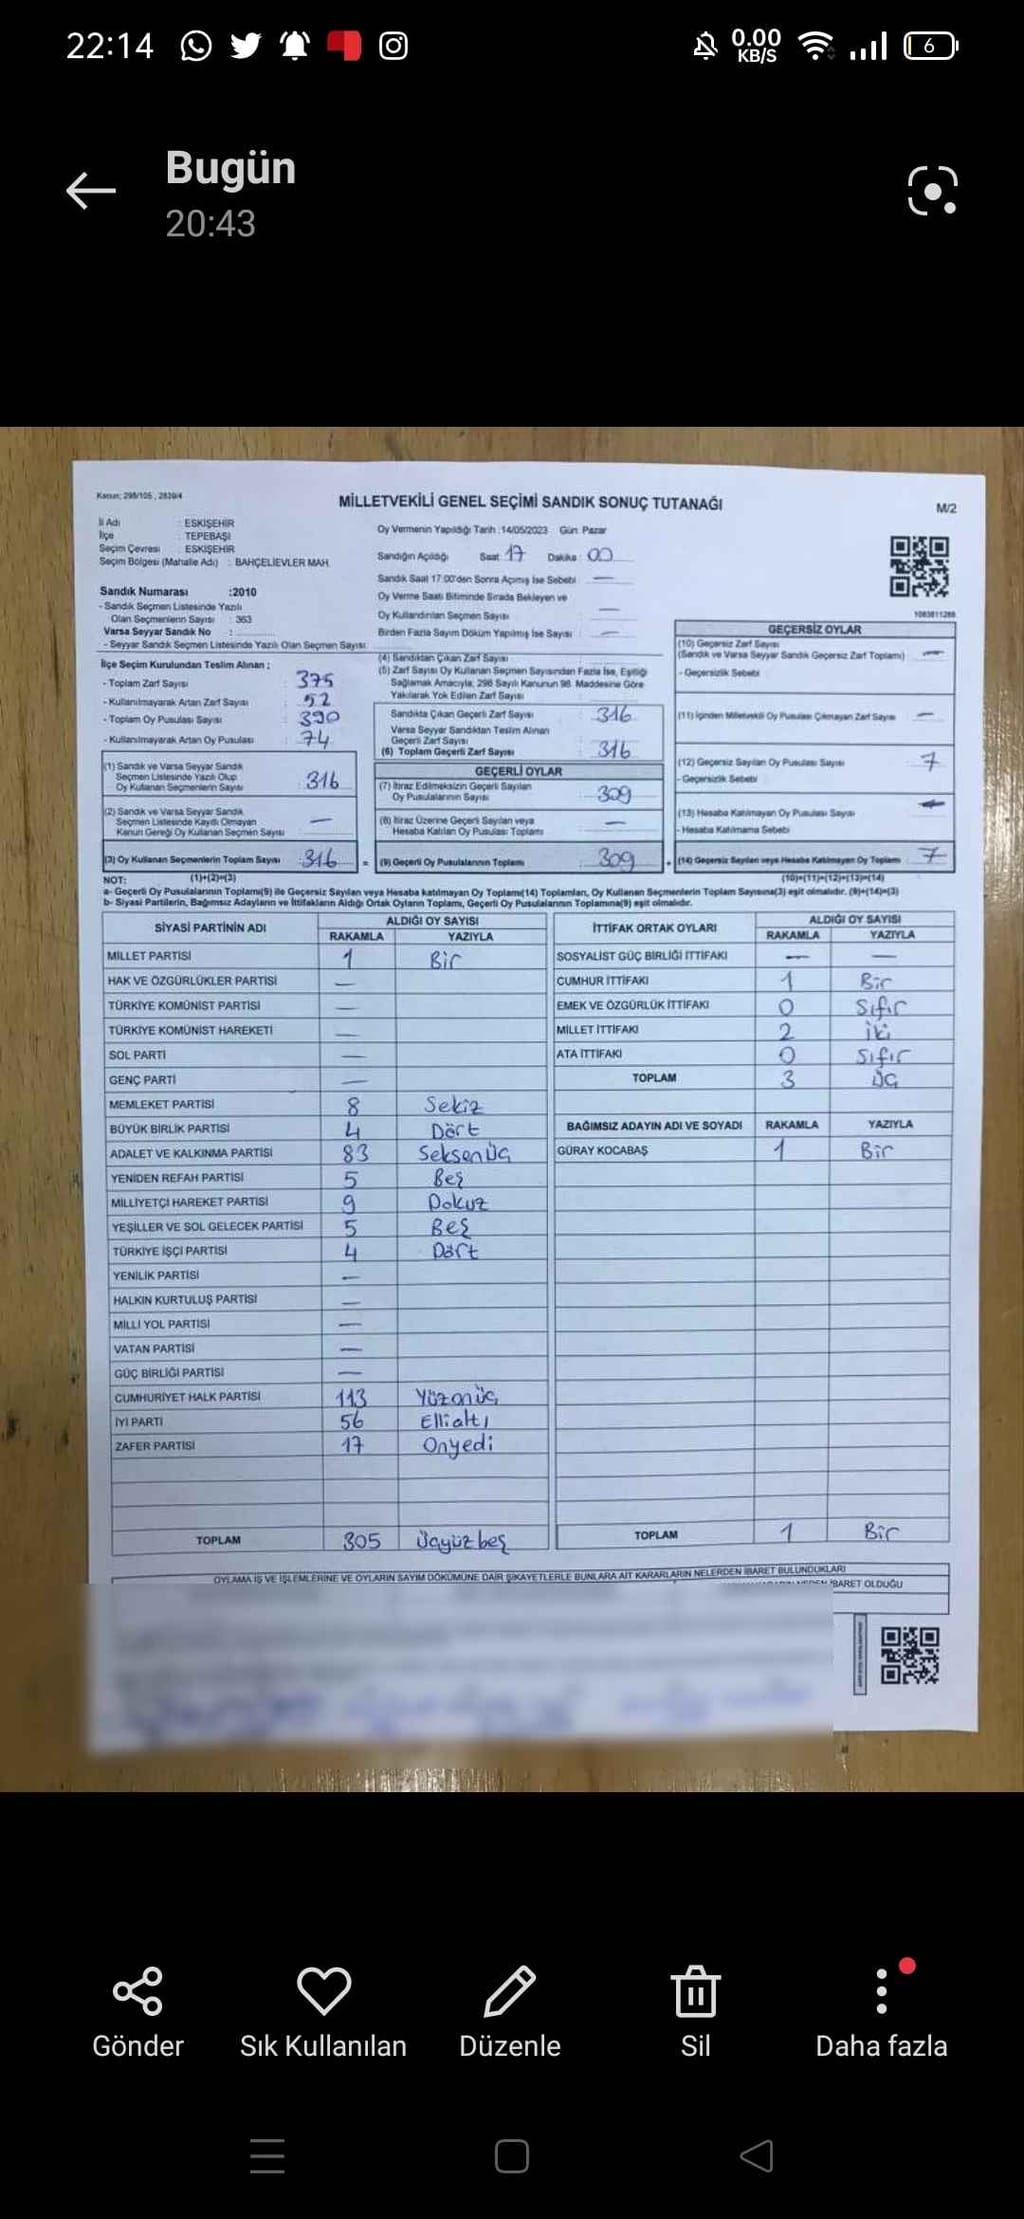 22:14
0.00 KB/S
6
Bugün
20:43
Kanun: 298/105, 2839/4
MİLLETVEKİLİ GENEL SEÇİMİ SANDIK SONUÇ TUTANAĞI
M/2
İl Adı : ESKİŞEHİR
İlçe : TEPEBAŞI
Seçim Çevresi : ESKİŞEHİR
Seçim Bölgesi (Mahalle Adı) : BAHÇELİEVLER MAH.
Oy Vermenin Yapıldığı Tarih :14/05/2023 Gün: Pazar
Sandığın Açıldığı Saat: 17 Dakika : 00
Sandık Saat 17:00'den Sonra Açılmış İse Sebebi —
Oy Verme Saati Bitiminde Sırada Bekleyen ve
Oy Kullandırılan Seçmen Sayısı —
Birden Fazla Sayım Döküm Yapılmış İse Sayısı —
Sandık Numarası :2010
- Sandık Seçmen Listesinde Yazılı
Olan Seçmenlerin Sayısı : 363
Varsa Seyyar Sandık No :
- Seyyar Sandık Seçmen Listesinde Yazılı Olan Seçmen Sayısı:
İlçe Seçim Kurulundan Teslim Alınan ;
- Toplam Zarf Sayısı : 375
- Kullanılmayarak Artan Zarf Sayısı : 52
- Toplam Oy Pusulası Sayısı : 390
- Kullanılmayarak Artan Oy Pusulası : 74
(1) Sandık ve Varsa Seyyar Sandık
Seçmen Listesinde Yazılı Olup
Oy Kullanan Seçmenlerin Sayısı : 316
(2) Sandık ve Varsa Seyyar Sandık
Seçmen Listesinde Kaydı Olmayan
Kanun Gereği Oy Kullanan Seçmen Sayısı —
(3) Oy Kullanan Seçmenlerin Toplam Sayısı : 316
(1)+(2)=(3)
(4) Sandıktan Çıkan Zarf Sayısı
(5) Zarf Sayısı Oy Kullanan Seçmen Sayısından Fazla İse, Eşitliği
Sağlamak Amacıyla; 298 Sayılı Kanunun 98. Maddesine Göre
Yakılarak Yok Edilen Zarf Sayısı
Sandıkta Çıkan Geçerli Zarf Sayısı : 316
Varsa Seyyar Sandıktan Teslim Alınan
Geçerli Zarf Sayısı
(6) Toplam Geçerli Zarf Sayısı : 316
GEÇERLİ OYLAR
(7) İtiraz Edilmeksizin Geçerli Sayılan
Oy Pusulalarının Sayısı : 309
(8) İtiraz Üzerine Geçerli Sayılan veya
Hesaba Katılan Oy Pusulası Toplamı —
= (9) Geçerli Oy Pusulalarının Toplamı : 309
1083811288
GEÇERSİZ OYLAR
(10) Geçersiz Zarf Sayısı
(Sandık ve Varsa Seyyar Sandık Geçersiz Zarf Toplamı) —
- Geçersizlik Sebebi
(11) İçinden Milletvekili Oy Pusulası Çıkmayan Zarf Sayısı —
(12) Geçersiz Sayılan Oy Pusulası Sayısı 7
- Geçersizlik Sebebi
(13) Hesaba Katılmayan Oy Pusulası Sayısı —
- Hesaba Katılmama Sebebi
+ (14) Geçersiz Sayılan veya Hesaba Katılmayan Oy Toplamı 7
(10)+(11)+(12)+(13)=(14)
NOT:
a- Geçerli Oy Pusulalarının Toplamı(9) ile Geçersiz Sayılan veya Hesaba katılmayan Oy Toplamı(14) Toplamları, Oy Kullanan Seçmenlerin Toplam Sayısına(3) eşit olmalıdır. (9)+(14)=(3)
b- Siyasi Partilerin, Bağımsız Adayların ve İttifakların Aldığı Ortak Oyların Toplamı, Geçerli Oy Pusulalarının Toplamına(9) eşit olmalıdır.
SİYASİ PARTİNİN ADI ALDIĞI OY SAYISI
RAKAMLA YAZIYLA
MİLLET PARTİSİ 1 Bir
HAK VE ÖZGÜRLÜKLER PARTİSİ —
TÜRKİYE KOMÜNİST PARTİSİ —
TÜRKİYE KOMÜNİST HAREKETİ —
SOL PARTİ —
GENÇ PARTİ —
MEMLEKET PARTİSİ 8 Sekiz
BÜYÜK BİRLİK PARTİSİ 4 Dört
ADALET VE KALKINMA PARTİSİ 83 Seksen Üç
YENİDEN REFAH PARTİSİ 5 Beş
MİLLİYETÇİ HAREKET PARTİSİ 9 Dokuz
YEŞİLLER VE SOL GELECEK PARTİSİ 5 Beş
TÜRKİYE İŞÇİ PARTİSİ 4 Dört
YENİLİK PARTİSİ —
HALKIN KURTULUŞ PARTİSİ —
MİLLİ YOL PARTİSİ —
VATAN PARTİSİ —
GÜÇ BİRLİĞİ PARTİSİ —
CUMHURİYET HALK PARTİSİ 113 Yüzonüç
İYİ PARTİ 56 Ellialtı
ZAFER PARTİSİ 17 Onyedi
TOPLAM 305 Üçyüzbeş
İTTİFAK ORTAK OYLARI ALDIĞI OY SAYISI
RAKAMLA YAZIYLA
SOSYALİST GÜÇ BİRLİĞİ İTTİFAKI — —
CUMHUR İTTİFAKI 1 Bir
EMEK VE ÖZGÜRLÜK İTTİFAKI 0 Sıfır
MİLLET İTTİFAKI 2 iki
ATA İTTİFAKI 0 Sıfır
TOPLAM 3 Üç
BAĞIMSIZ ADAYIN ADI VE SOYADI RAKAMLA YAZIYLA
GÜRAY KOCABAŞ 1 Bir
TOPLAM 1 Bir
OYLAMA İŞ VE İŞLEMLERİNE VE OYLARIN SAYIM DÖKÜMÜNE DAİR ŞİKAYETLERLE BUNLARA AİT KARARLARIN NELERDEN İBARET BULUNDUKLARI
İBARET OLDUĞU
Gönder
Sık Kullanılan
Düzenle
Sil
Daha fazla